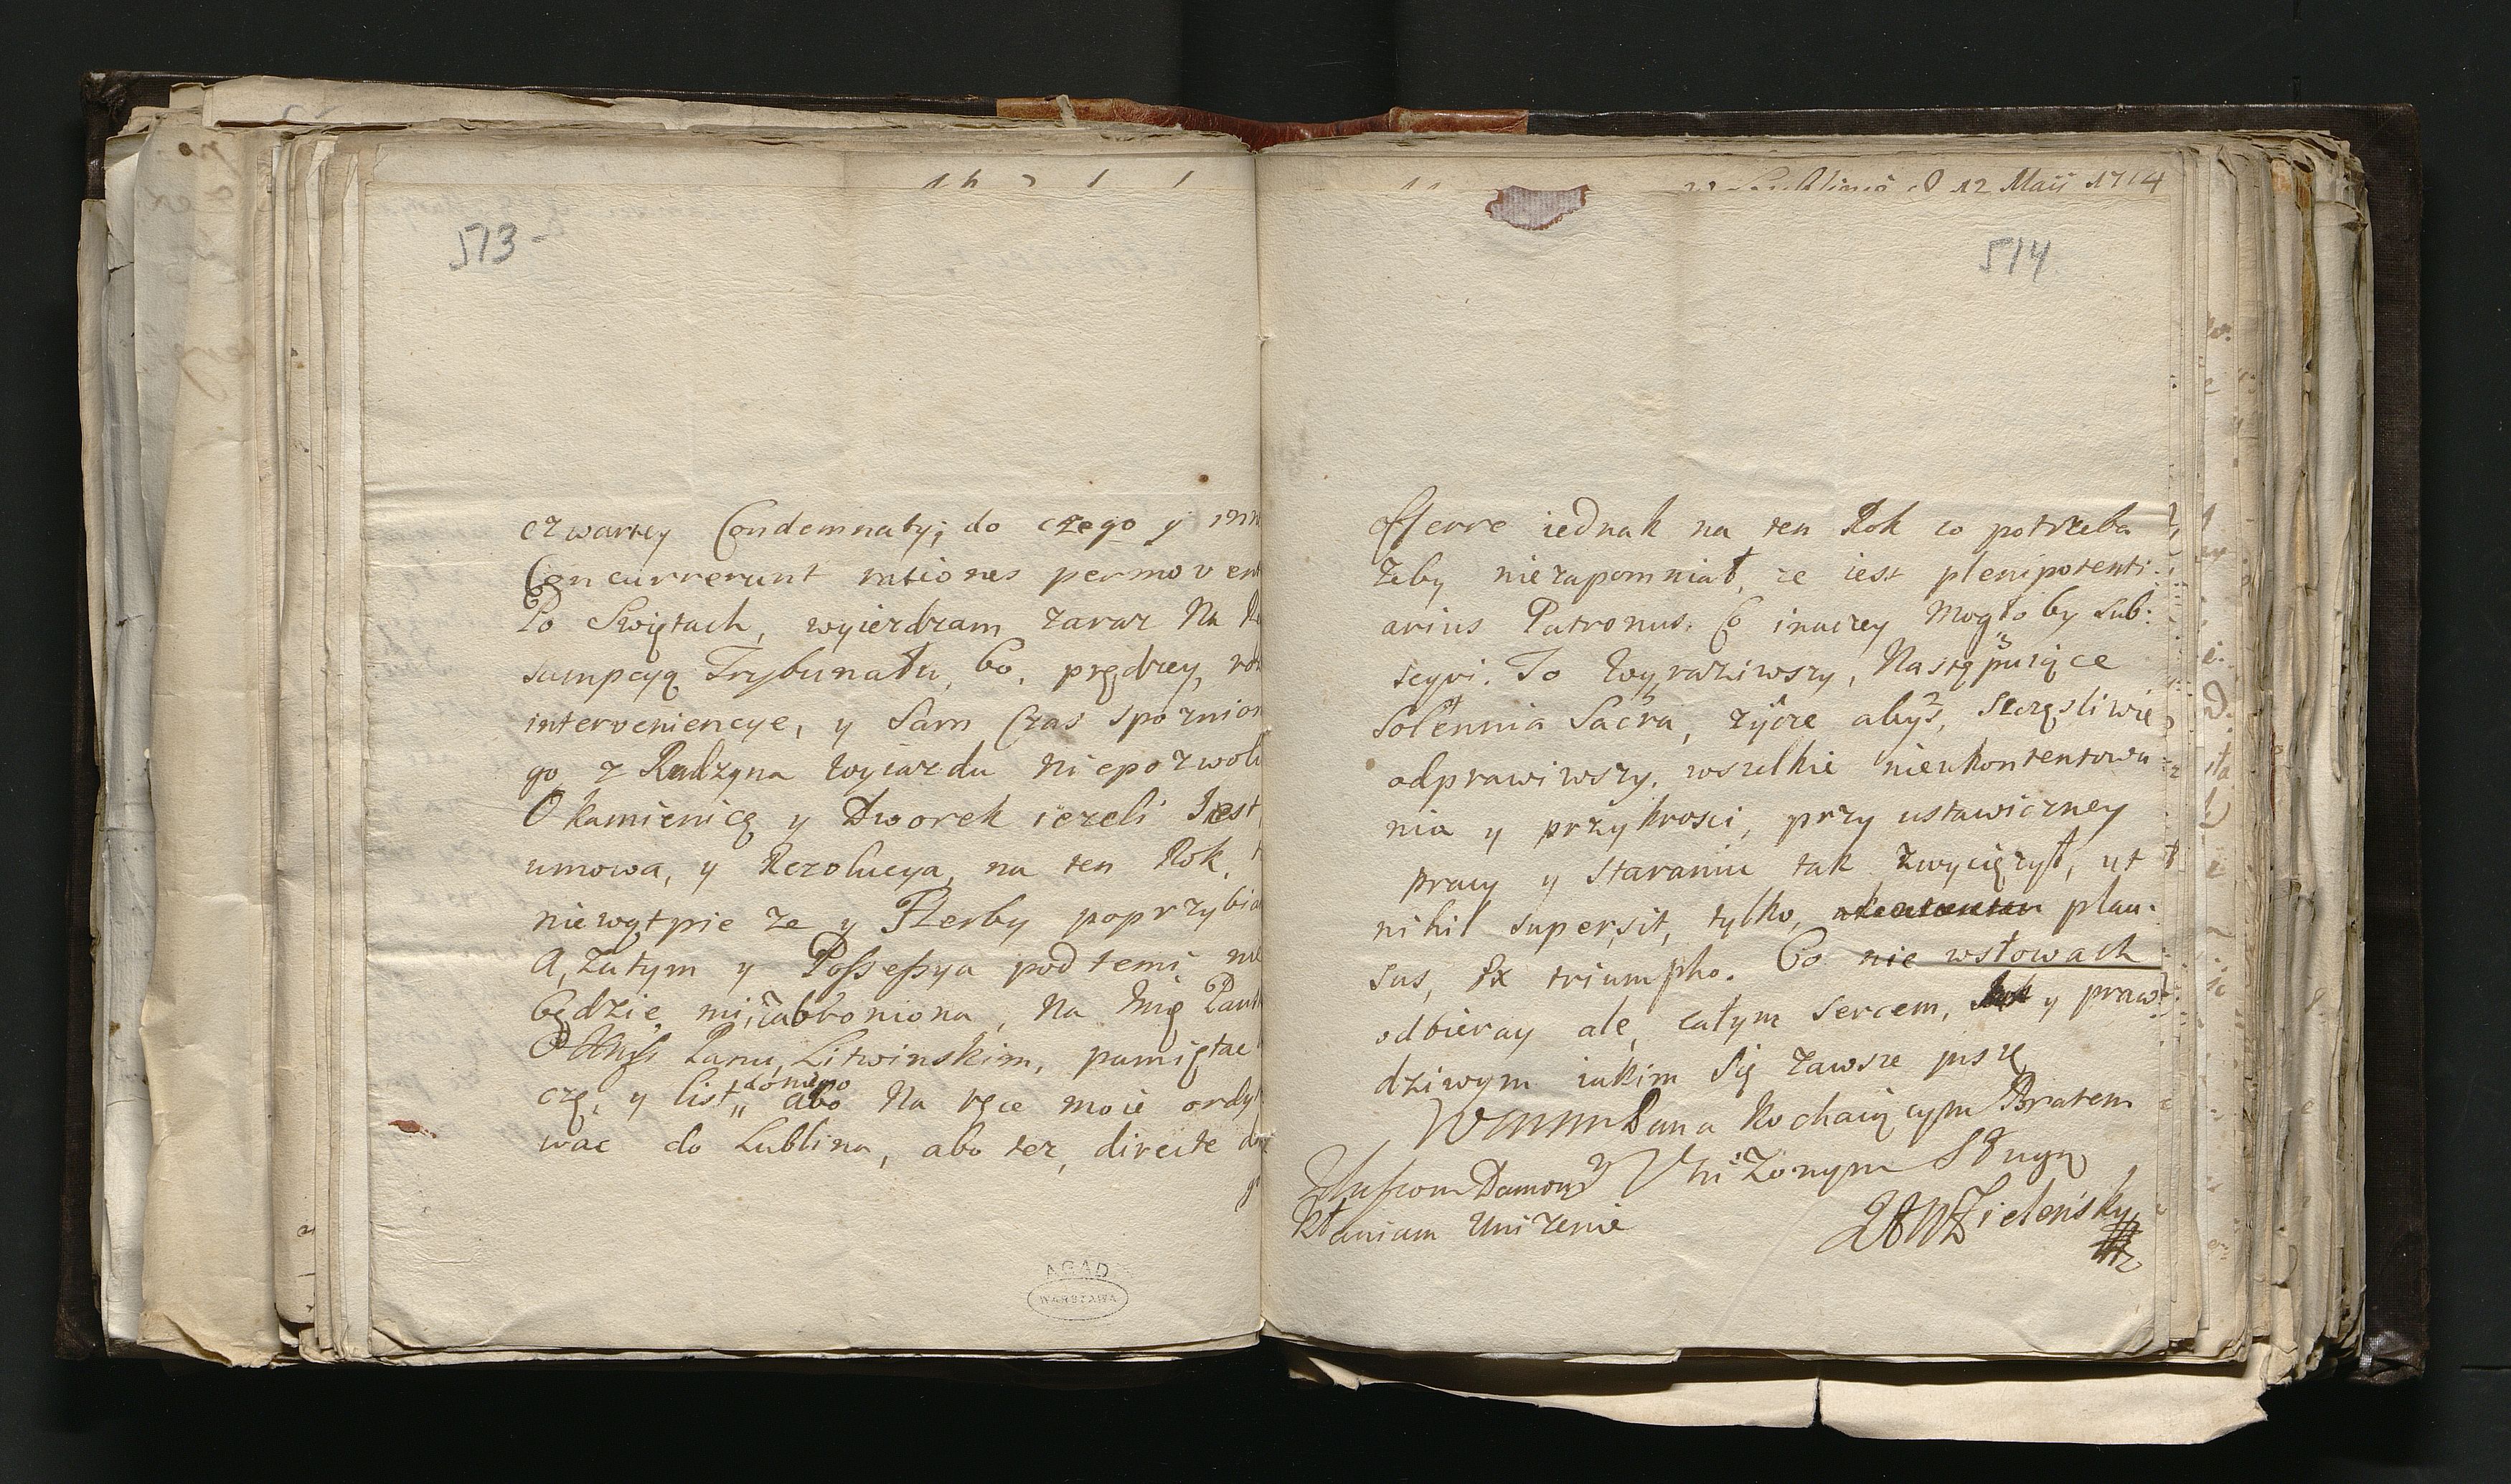 513-
czwartey Condemnaty; do czego y inn
Concurrerunt rationes permovent
Po Swiętach, wyiezdzam zaraz Na R
sumpcyą Trybunału, bo, prędzey,
interveniencye, y Sam Czas spoznion
go z Radzyna wyiazdu niepozwoli
O kamienicę y Dworek iezeli Iest
umowa, y Rezolucya, na ten Rok,
niewątpie ze y Herby poprzybia
A, Zatym y Possessya pod temi
będzie mi, zabroniona, Na Imię
Panu, Litwinskim, pamiętac
czą, y list abo Na ręce moie ordy
wac do Lublina, abo tez, directe do
AGAD
WARSZAWA
12 Maii 1714
514
iednak na ten Rok co potrzeba
Zeby niezapomniał, ze iest plenipotenti-
arius Patronus. Co inaczey Mogło by Sub:
seqvi. To wyraziwszy, Następuiące
Solennia Sacra, zycze abys, szczęsliwie
odprawiwszy, wszelkie nieukontentowa
nia y przykrosci, przy ustawiczney
pracy y staraniu tak zwyciężył, ut
nihil supersit, tylko, plau-
sus, ex triumpho. Co nie wsłowach
odbieray ale, całym sercem, y praw
dziwym iakim Się zawsze piszę
Pana Kochaiącym Bratem
y Uniżonym Sługą
Kłaniam Uniżenie
Zieleński